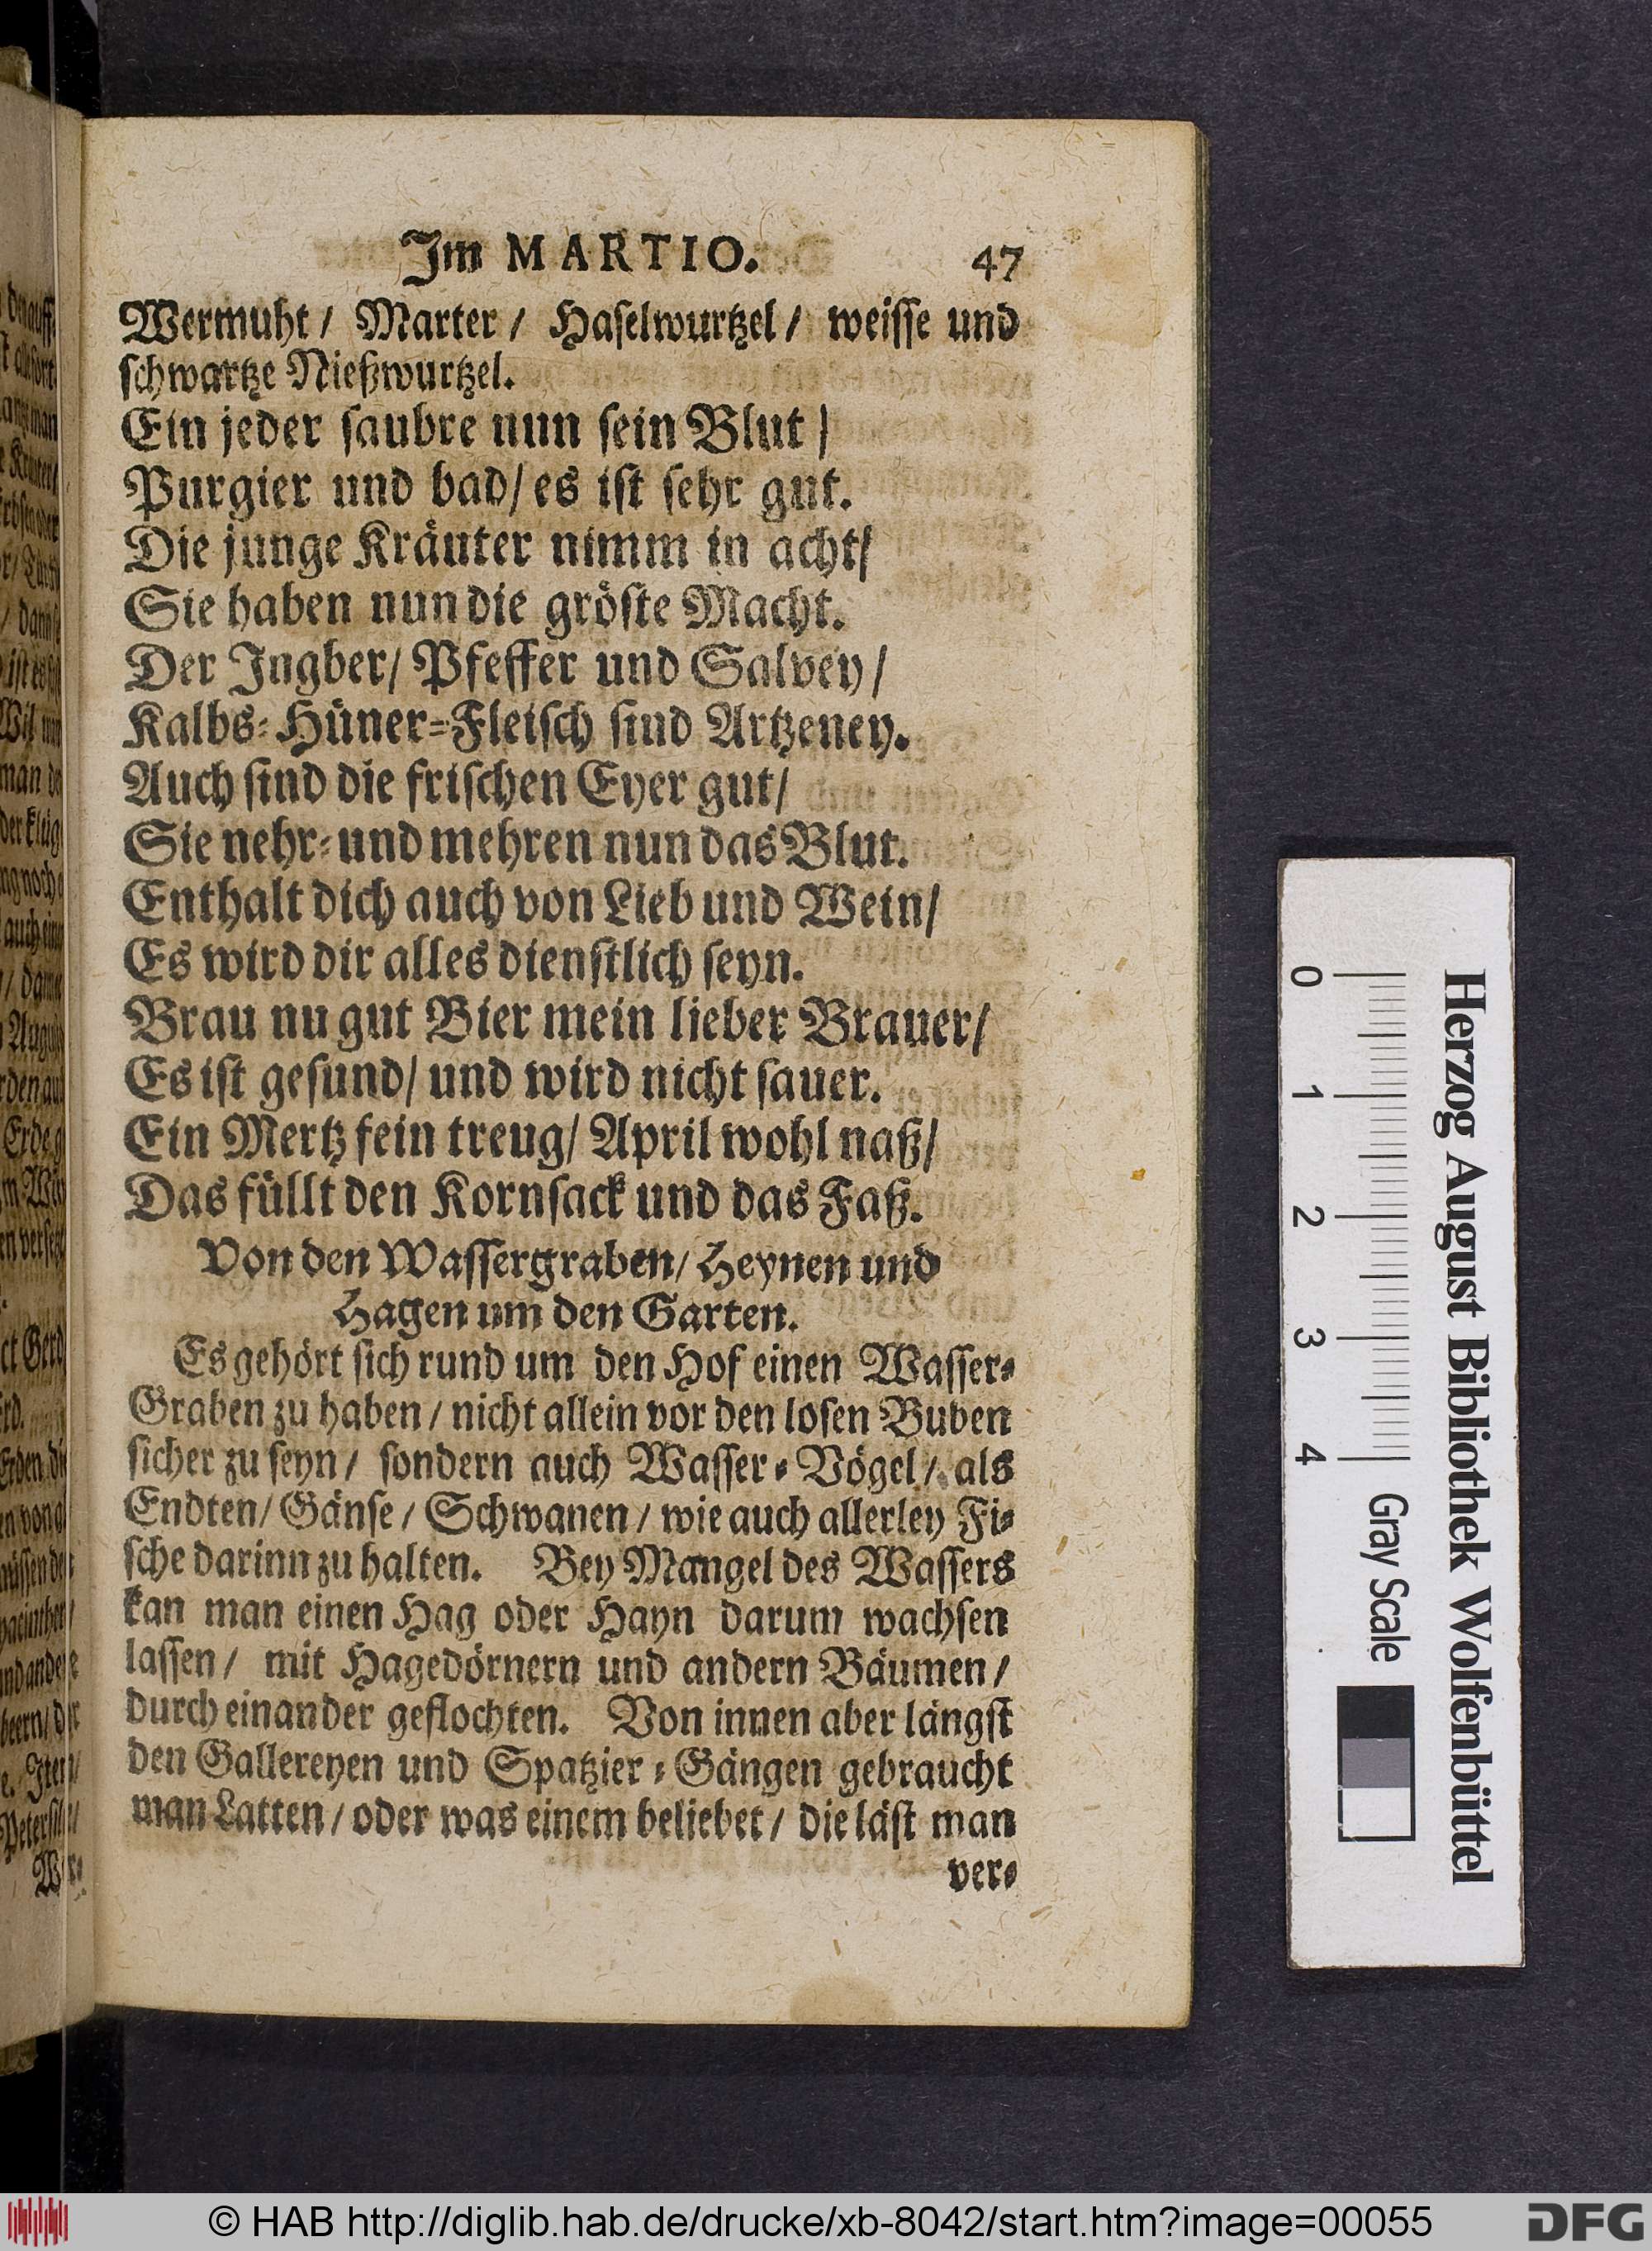 Im MARTIO. 47
Wermuht / Marter / Haſelwurtzel / weiſſe und
ſchwartze Nießwurtzel.
Ein jeder ſaubre nun ſein Blut /
Purgier und bad / es iſt ſehr gut.
Die junge Kräuter nimm in acht /
Sie haben nun die gröſte Macht.
Der Ingber / Pfeffer und Salvey /
Kalbs-Hüner-Fleiſch ſind Artzeney.
Auch ſind die friſchen Eyer gut /
Sie nehr- und mehren nun das Blut.
Enthalt dich auch von Lieb und Wein /
Es wird dir alles dienſtlich ſeyn.
Brau nu gut Bier mein lieber Brauer /
Es iſt geſund / und wird nicht ſauer.
Ein Mertz fein treug / April wohl naß /
Das füllt den Kornſack und das Faß.
Von den Waſſergraben / Heynen und
Hagen um den Garten.
Es gehört ſich rund um den Hof einen Waſſer-
Graben zu haben / nicht allein vor den loſen Buben
ſicher zu ſeyn / ſondern auch Waſſer-Vögel / als
Endten / Gänſe / Schwanen / wie auch allerley Fi-
ſche darinn zu halten. Bey Mangel des Waſſers
kan man einen Hag oder Hayn darum wachſen
laſſen / mit Hagedörnern und andern Bäumen /
durch einander geflochten. Von innen aber längſt
den Gallereyen und Spatzier-Gängen gebraucht
man Latten / oder was einem beliebet / die läſt man
ver-
Herzog August Bibliothek Wolfenbüttel
0 1 2 3 4 Gray Scale
© HAB http://diglib.hab.de/drucke/xb-8042/start.htm?image=00055
DFG